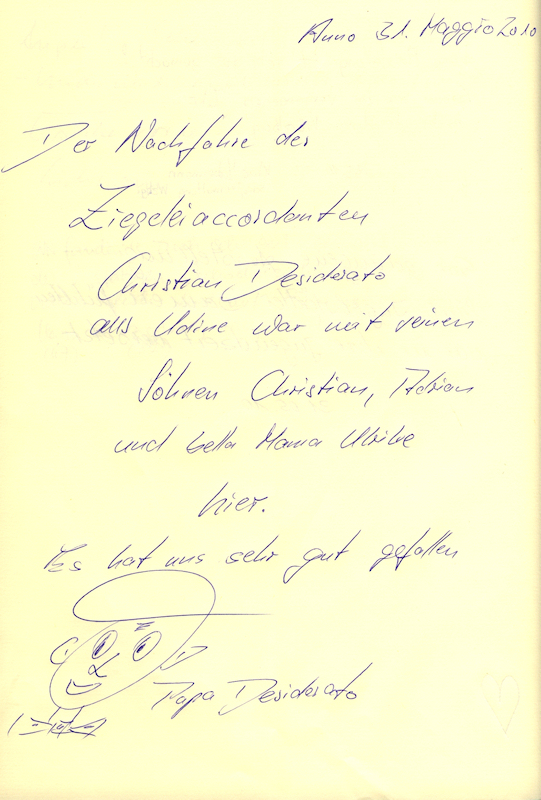 Anno 31. Maggio 2010
Der Nachfahre des
Ziegeleiaccordanten
Christian Desiderato
aus Udine war mit seinen
Söhnen Christian, Adrian
und bella Mama Ulrike
hier.
Es hat uns sehr gut gefallen
Papa Desiderato